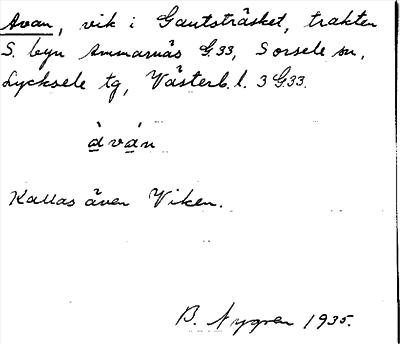 Avan, vik i Gautsträsket, trakten
S. byn Ammarnäs G.33, Sorsele sn,
Lycksele tg, Västerb. l. 3 G33.
àván
Kallas även Viken.
B. Nygren 1935.